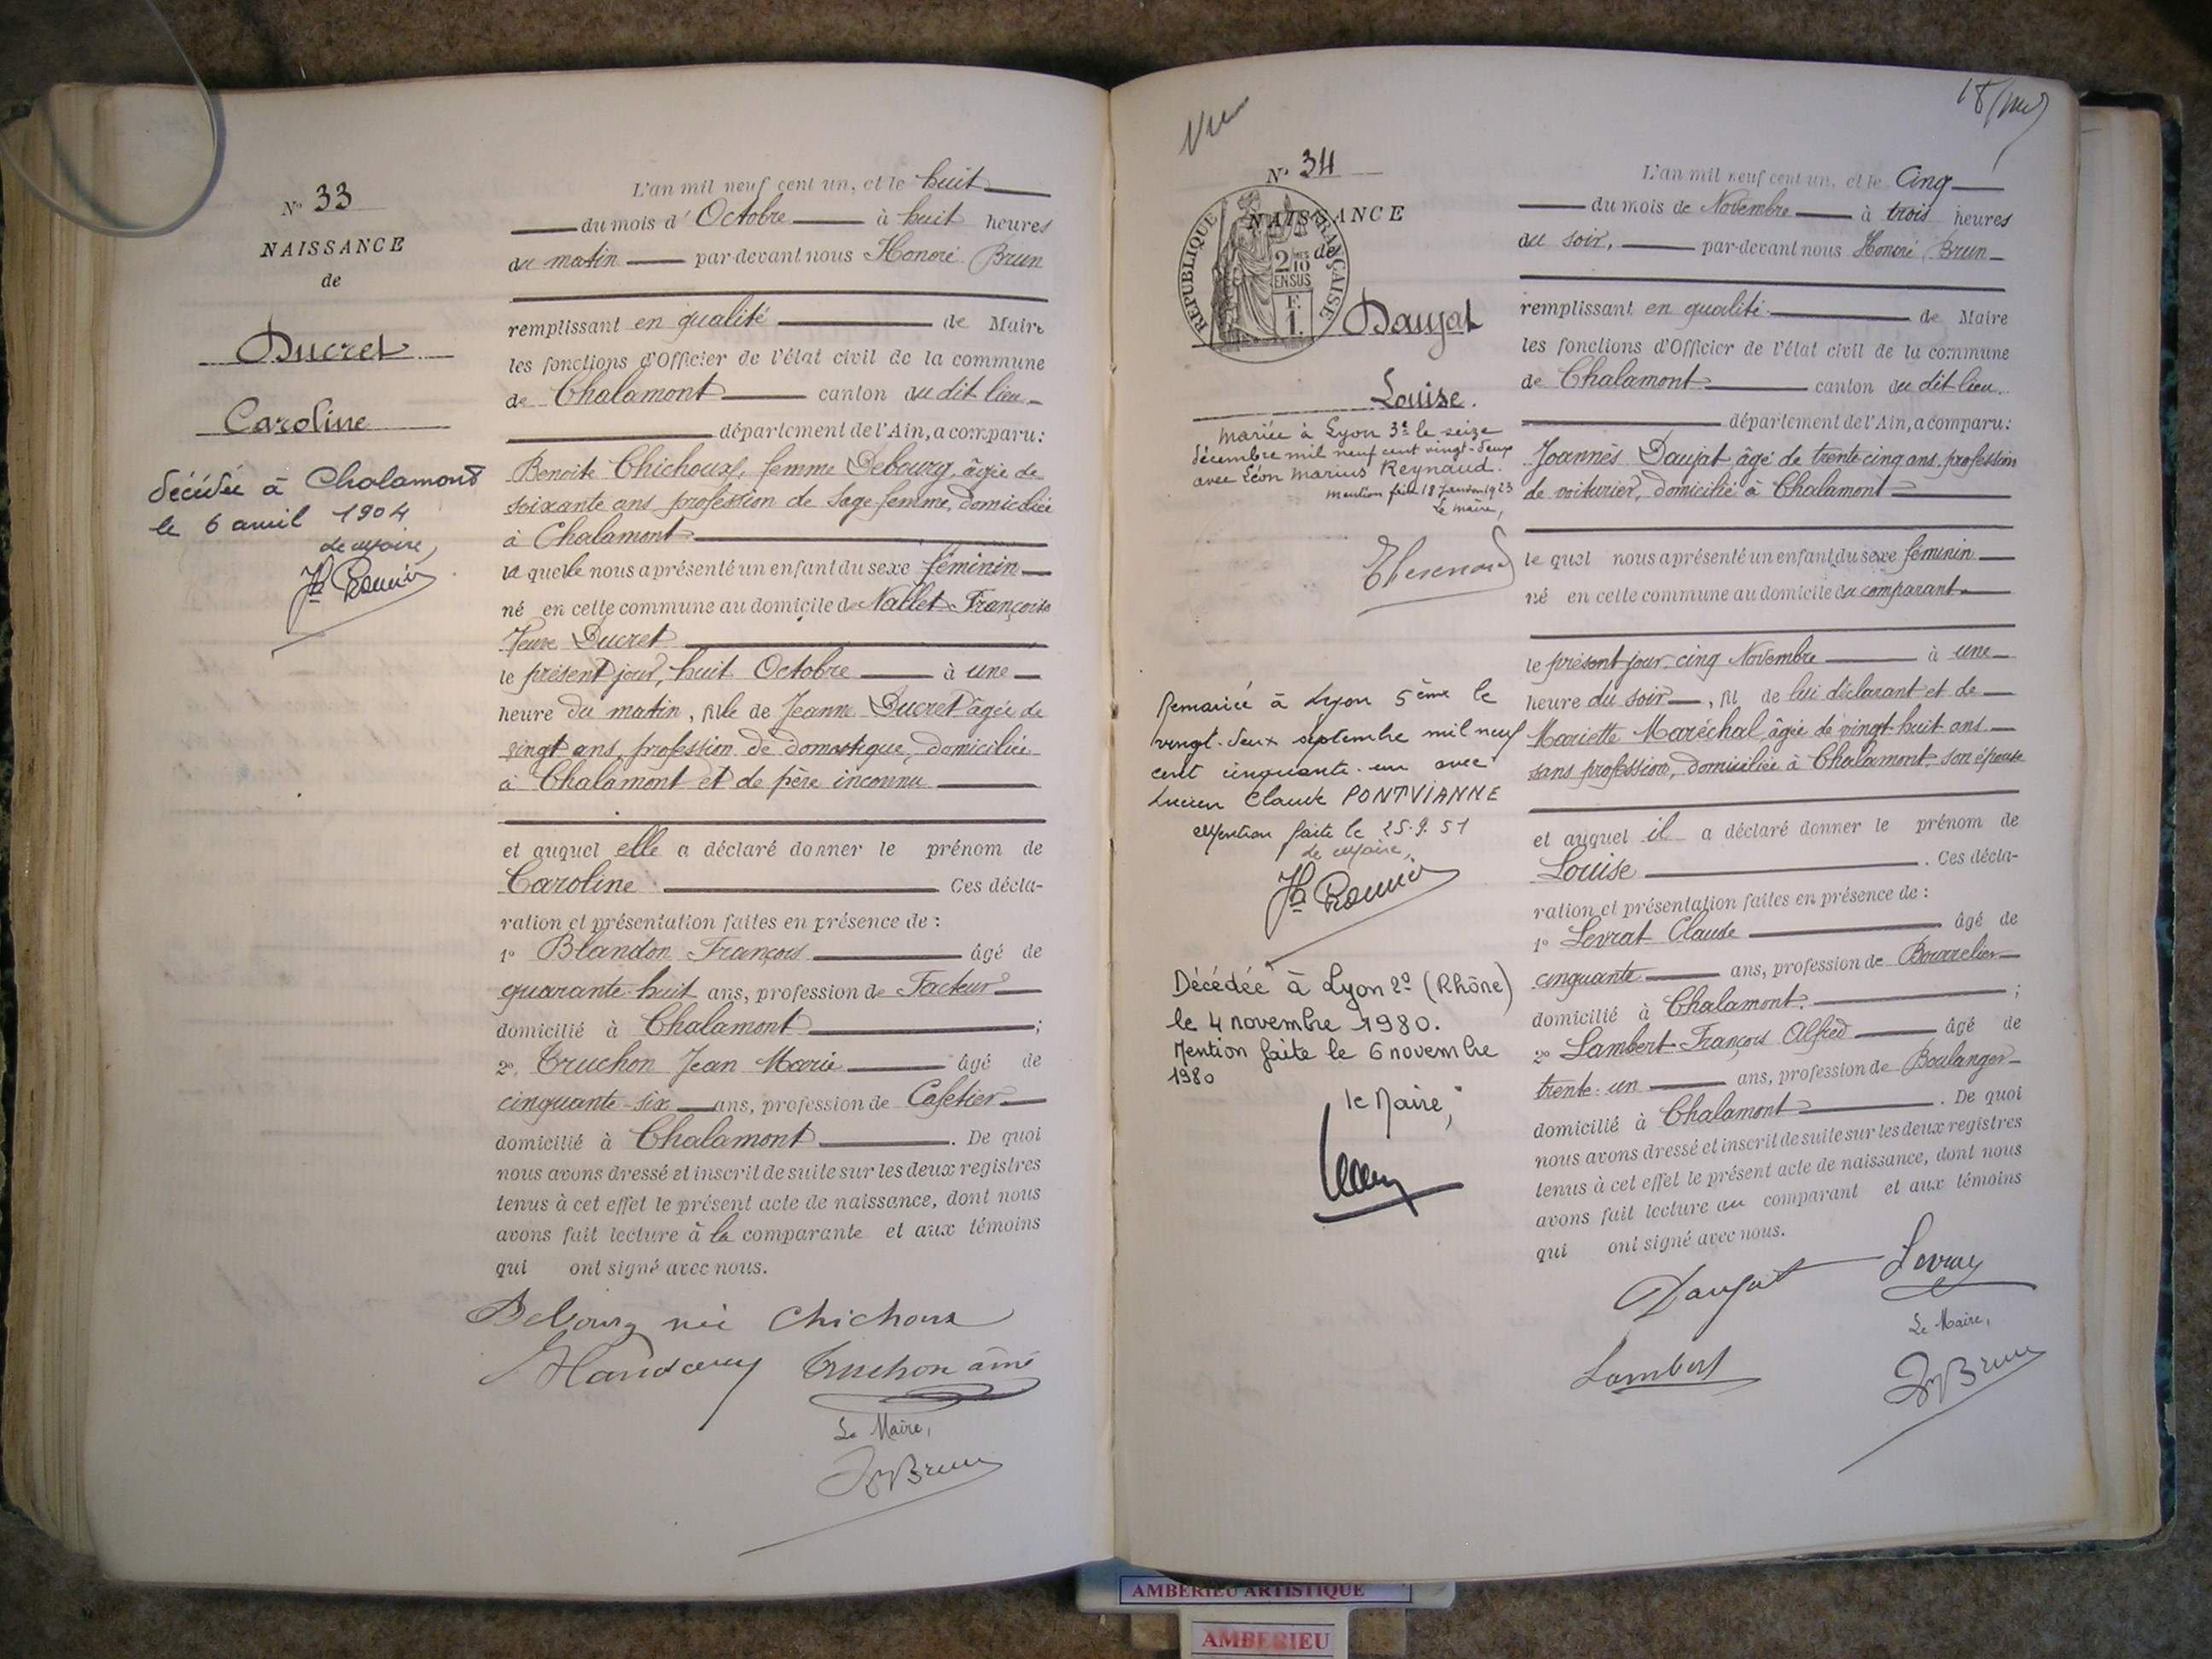 N° 33
NAISSANCE
de
Ducret
Caroline
décédée à Chalamont
le 6 avril 1904
Le Maire,
L'an mil neuf cent un, et le huit
du mois d'Octobre à huit heures
du matin par-devant nous Honoré Brun
remplissant en qualité de Maire
les fonctions d'Officier de l'état civil de la commune
de Chalamont canton du dit lieu
département de l'Ain, a comparu:
Benoite Chichoux, femme Debourg, âgée de
soixante ans profession de Sage-femme, domiciliée
à Chalamont
la quelle nous a présenté un enfant du sexe féminin
né en cette commune au domicile de Nallet Françoise
Veuve Ducret
le présent jour, huit Octobre à une
heure du matin, fille de Jeanne Ducret âgée de
vingt ans, profession de domestique, domiciliée
à Chalamont et de père inconnu
et auquel elle a déclaré donner le prénom de
Caroline Ces décla-
ration et présentation faites en présence de :
1° Blandon François âgé de
quarante-huit ans, profession de Facteur
domicilié à Chalamont ;
2° Truchon Jean Marie âgé de
cinquante-six ans, profession de Cafetier
domicilié à Chalamont . De quoi
nous avons dressé et inscrit de suite sur les deux registres
tenus à cet effet le présent acte de naissance, dont nous
avons fait lecture à la comparante et aux témoins
qui ont signé avec nous.
Debourg née Chichoux
Truchon aîné
Le Maire,
Brun
Vu
N° 34
NAISSANCE
de
RÉPUBLIQUE FRANÇAISE
2/10 EN SUS
F. 1.
Daujat
Louise.
mariée à Lyon 3e le seize
décembre mil neuf cent vingt-deux
avec Léon Marius Reynaud.
Mention faite 18 Janvier 1923
Le Maire,
Remariée à Lyon 5ème le
vingt-deux septembre mil neuf
cent cinquante-un avec
Lucien Claude PONTVIANNE
Mention faite le 25.9.51
Le Maire,
Décédée à Lyon 2e (Rhône)
le 4 novembre 1980.
Mention faite le 6 novembre
1980
le Maire,
L'an mil neuf cent un, et le Cinq
du mois de Novembre à trois heures
du soir, par-devant nous Honoré Brun
remplissant en qualité de Maire
les fonctions d'Officier de l'état civil de la commune
de Chalamont canton du dit lieu
département de l'Ain, a comparu:
Joannès Daujat âgé de trente-cinq ans, profession
de voiturier, domicilié à Chalamont
le quel nous a présenté un enfant du sexe féminin
né en cette commune au domicile du comparant
le présent jour cinq Novembre à une
heure du soir, fil de lui déclarant et de
Mariette Maréchal, âgée de vingt-huit ans
sans profession, domiciliée à Chalamont, son épouse
et auquel il a déclaré donner le prénom de
Louise . Ces décla-
ration et présentation faites en présence de :
1° Levrat Claude âgé de
cinquante ans, profession de Bourrelier
domicilié à Chalamont. ;
2° Lambert François Alfred âgé de
trente-un ans, profession de Boulanger
domicilié à Chalamont . De quoi
nous avons dressé et inscrit de suite sur les deux registres
tenus à cet effet le présent acte de naissance, dont nous
avons fait lecture au comparant et aux témoins
qui ont signé avec nous.
Daujat Levrat
Lambert
Le Maire,
Brun
AMBERIEU ARTISTIQUE
AMBERIEU